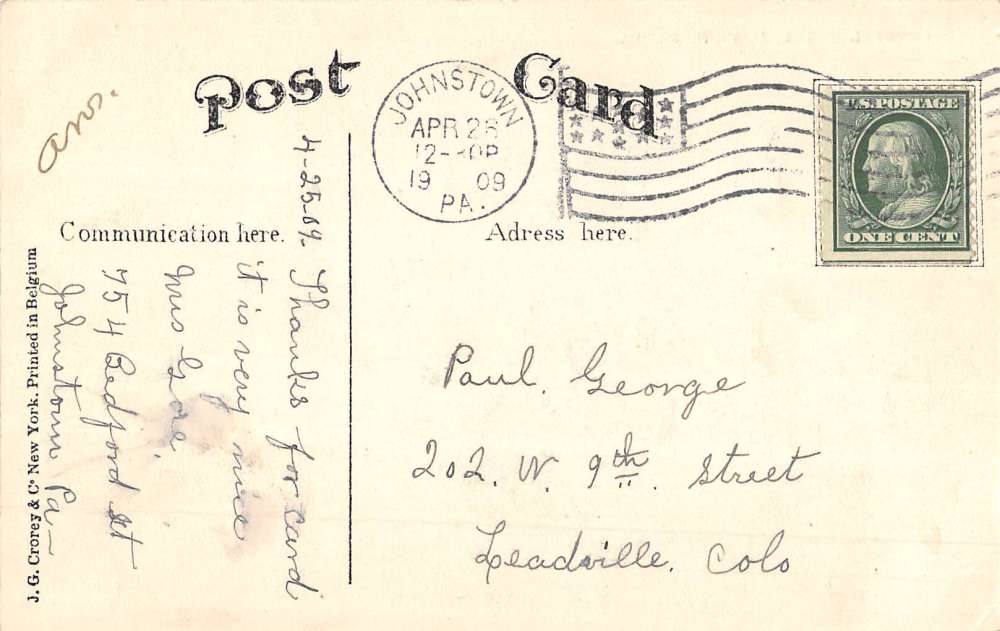 Post Card
JOHNSTOWN
APR 26
12-30P
19 09
PA.
U.S. POSTAGE
ONE CENT
ans.
Communication here.
Adress here.
4-25-09.
Thanks for card
it is very nice
Mrs Gore.
754 Bedford st
Johnstown Pa-
Paul. George
202. W. 9th. Street
Leadville. Colo
J. G. Crorey & Co New York. Printed in Belgium